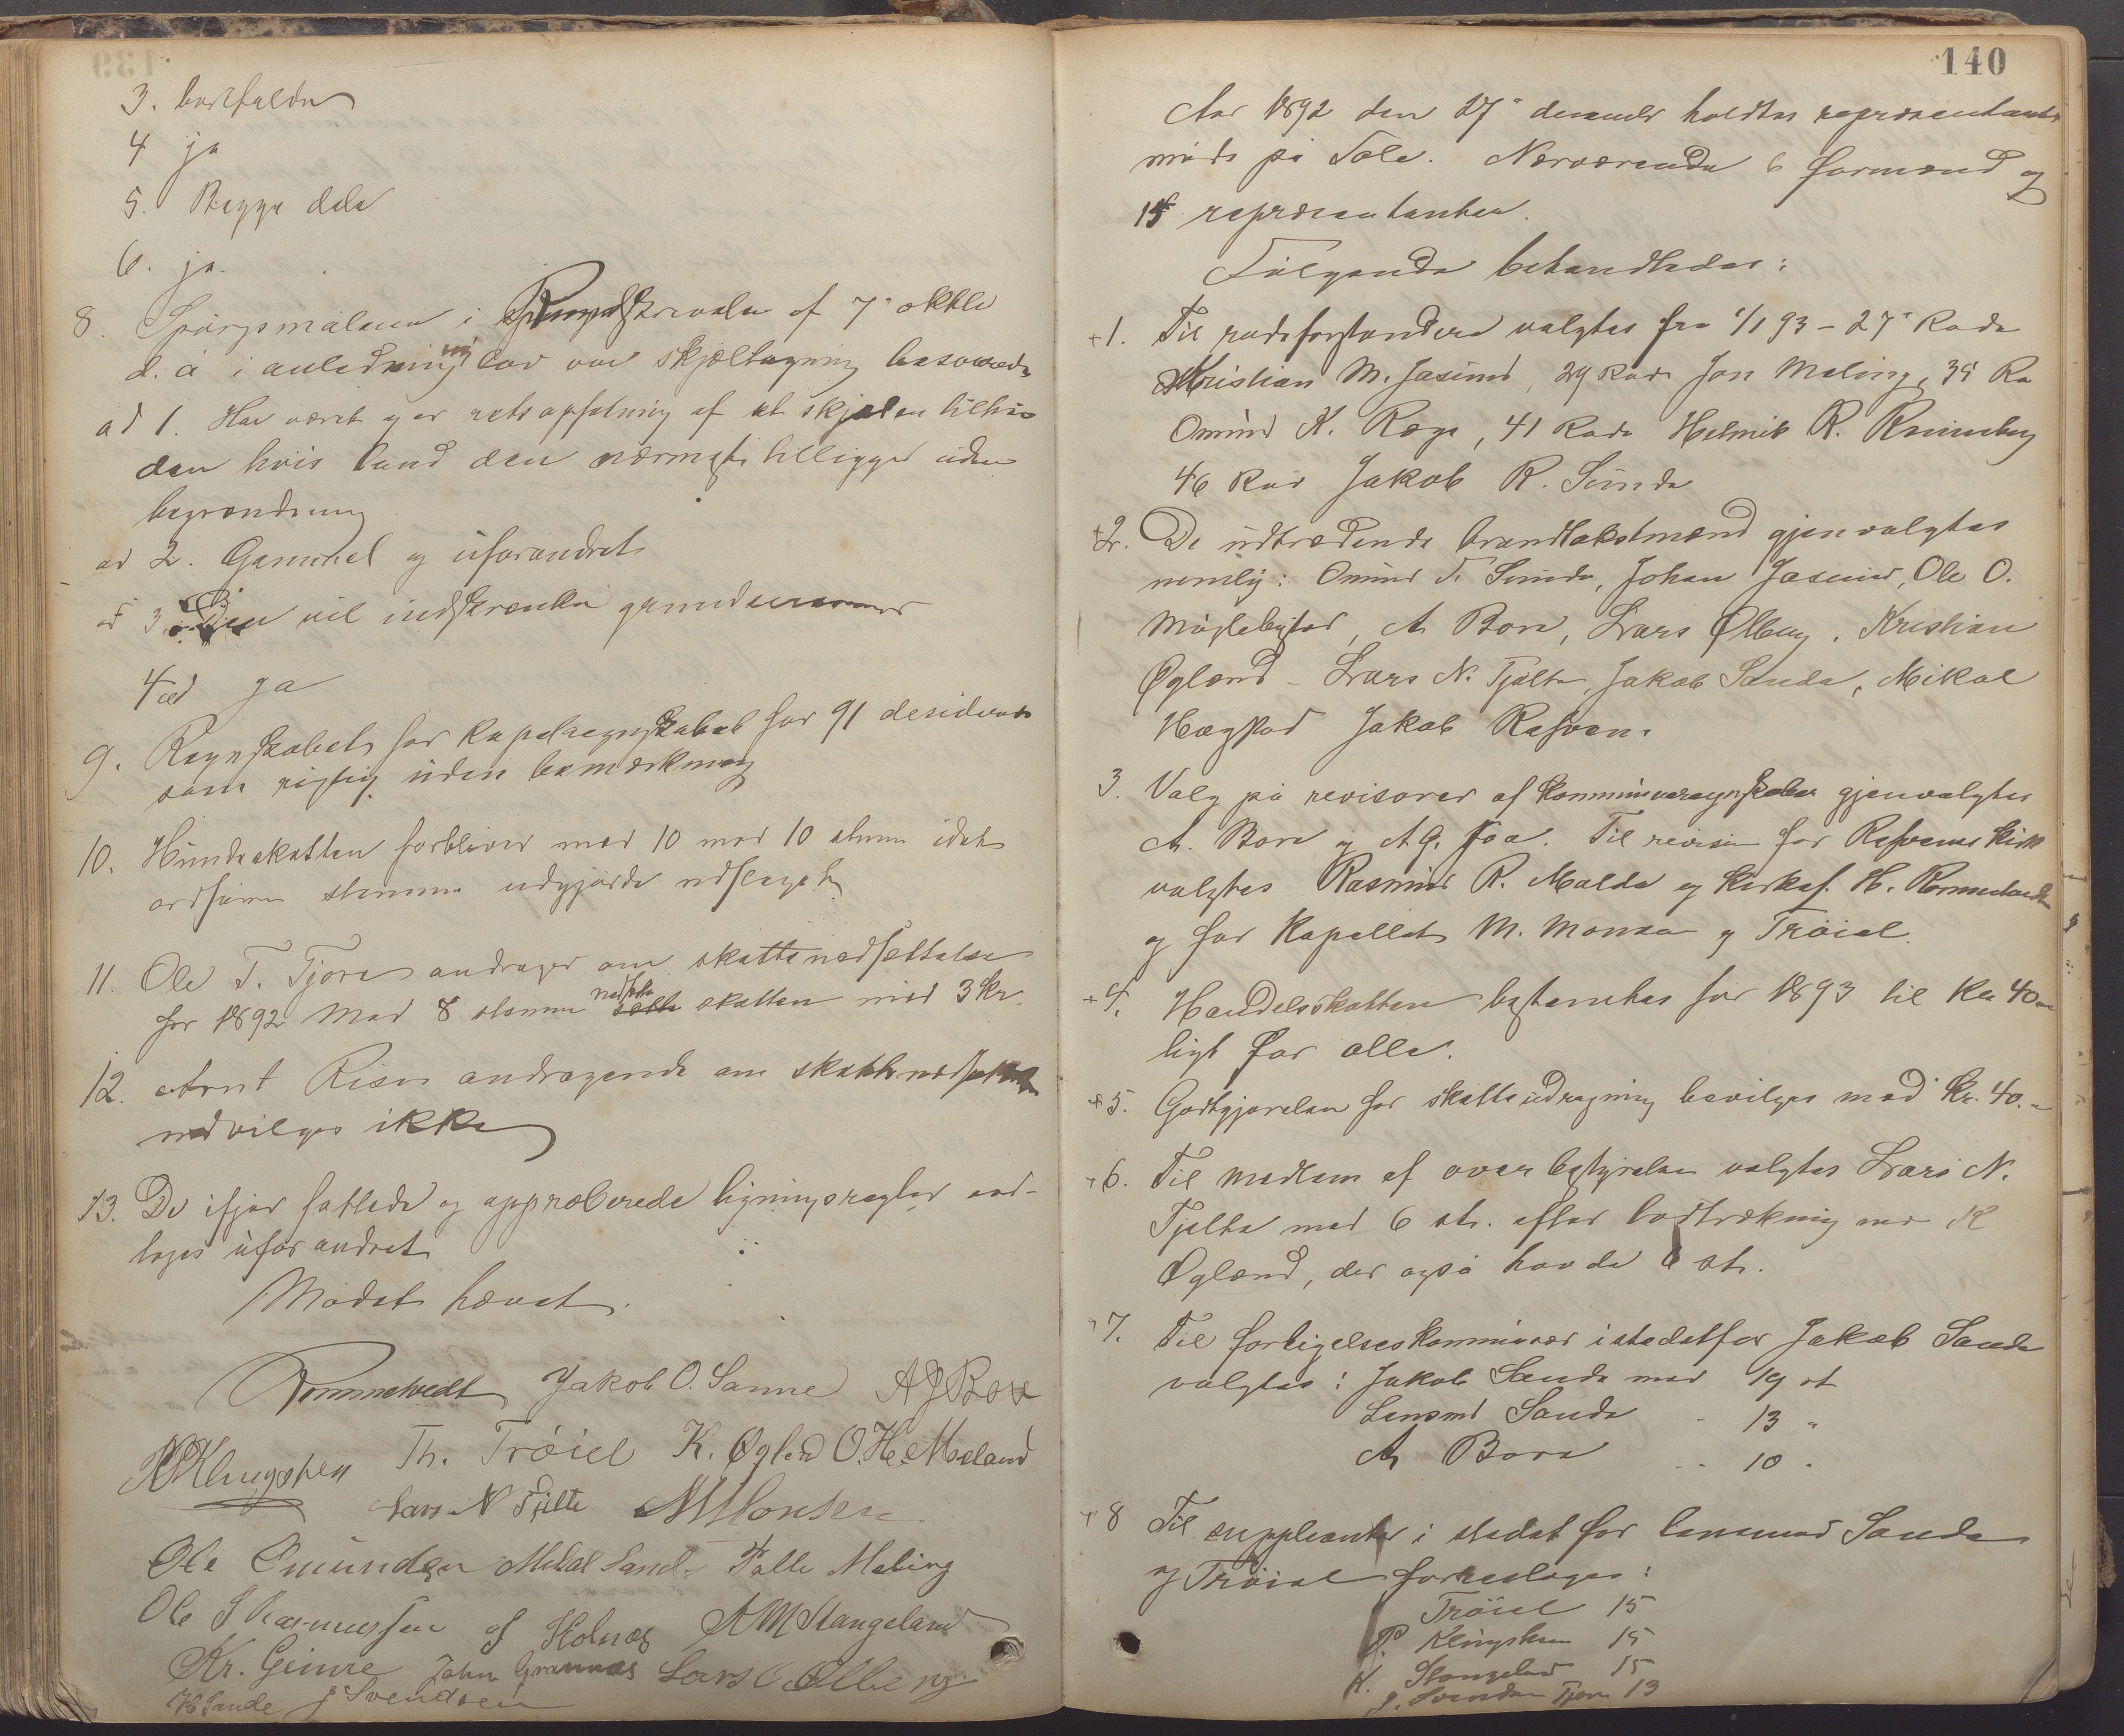 3. bortfalder
4 ja
5. Begge dele
6. ja.
8. Spörgsmålene i Rundskrivelse af 7' oktbr
d. å i anledning ny lov om skjæltagning besvaredes
ad 1. Har været og er retsopfatning af at skjælen tilhör
den hvis land den nærmeste tilligger uden
begrændsning
ad 2. Gammel og uforandret
ad 3. Den vil indskrænke
4 ad ja
9. Regnskabet for kapelregnskabet for 91 desideres
som rigtig uden bemærkning
10. Hundeskatten forbliver med 10 mod 10 stemmer idet
ordförers stemme udgjorde udslaget
11. Ole T. Tjora andrager om skattenedsættelse
for 1892 Med 8 stemmer nedsatte skatten med 3 kr.
12. Arnt Risa andragende om skattenedsættelse
indvilges ikke
13. De ifjor fattede og approberede ligningsregler ved-
toges uforandret
Mödet hævet.
Rommetvedt Jakob O. Sanne A J Bore
Klingsheim Th. Tröiel K. Øglænd O. H. Meland
Lars N Tjelte M Monsen
Ole Omundsen Mikal Sande Tolle Meling
Ole S Rasmussen af Holnæs A M Stangeland
Kr. Gimre John Grannæs Lars O Ølberg
H Sande J Svendsen
140
Aar 1892 den 27' december holdtes repræsentant-
möde på Sole. Nærværende 6 formænd og
15 repræsentanter.
Fölgende behandledes:
+1. Til rodeforstandere valgtes fra 1/1 93 - 27' Rode
Kristian M. Jasund, 29 Rode Jon Meling, 35 Ro
Omund K. Rege, 41 Rode Helmik R.
46 Rod Jakob R. Sunde
+2. De udtrædende brandtakstmænd gjenvalgtes
nemlig: Omund T. Sunde, Johan Jasund, Ole O.
Myklebust, A Bore, Lars Ølberg, Kristian
Øglænd - Lars N. Tjelta, Jakob Sande, Mikal
Hægstad Jakob Refsem.
3. Valg på revisorer af kommuneregnskabet gjenvalgtes
A. Bore og A G. Joa. Til revision for kirke
valgtes Rasmus R. Malde og kirkes. H. Rommetvedt
og for Kapellet M. Monsen og Tröiel.
+4. Handelsskatten bestemtes for 1893 til Kr 40
ligt for alle.
+5. Godtgjørelse for skatteindragning bevilges med kr. 40.-
+6. Til medlem af overbestyrelsen valgtes Lars N.
Tjelta med 6 st. efter lodtrækning med K
Øglænd, der også havde 6 st.
+7. Til forligelseskommissær istedetfor Jakob Sande
valgtes: Jakob Sande med 19 st
Lensmd Sande - 13 "
A Bore - 10 "
+8 Til suppleanter i stedet for lensmand Sande
og Tröiel foresloges:
Tröiel 15
P. Klingsheim 15
K. Stangeland 15
J. Svendsen Tjora 13